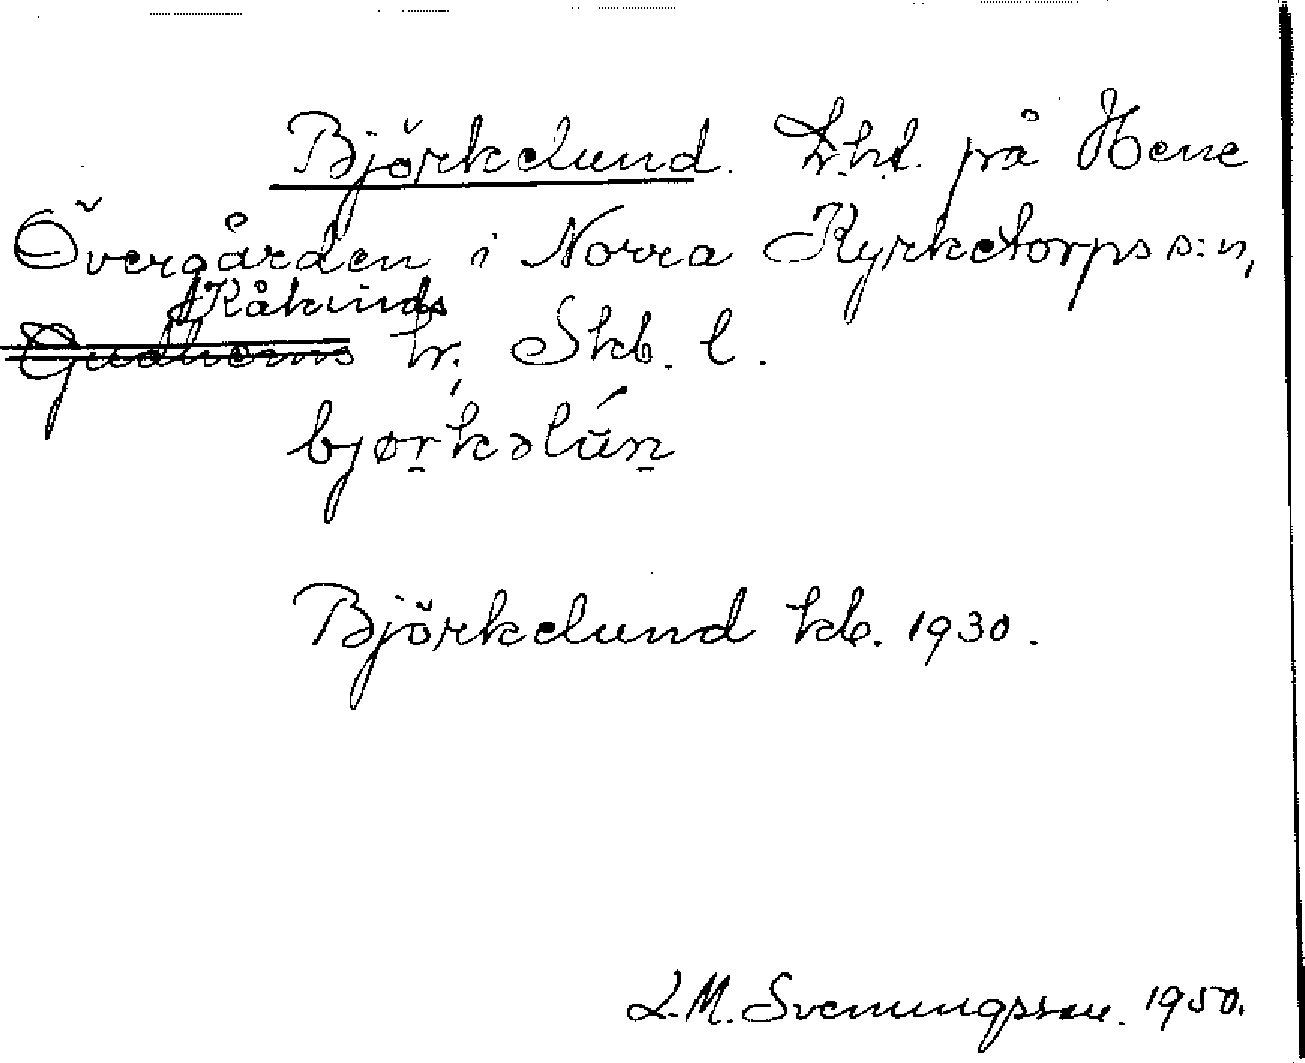 Björkelund. Lht. på Hene
Övergården i Norra Kyrketorps s:n,
Kåkinds
Gudhems hr, Skb. l.
bjørkəlún
Björkelund kb. 1930.
L.M. Svenungsson. 1950.